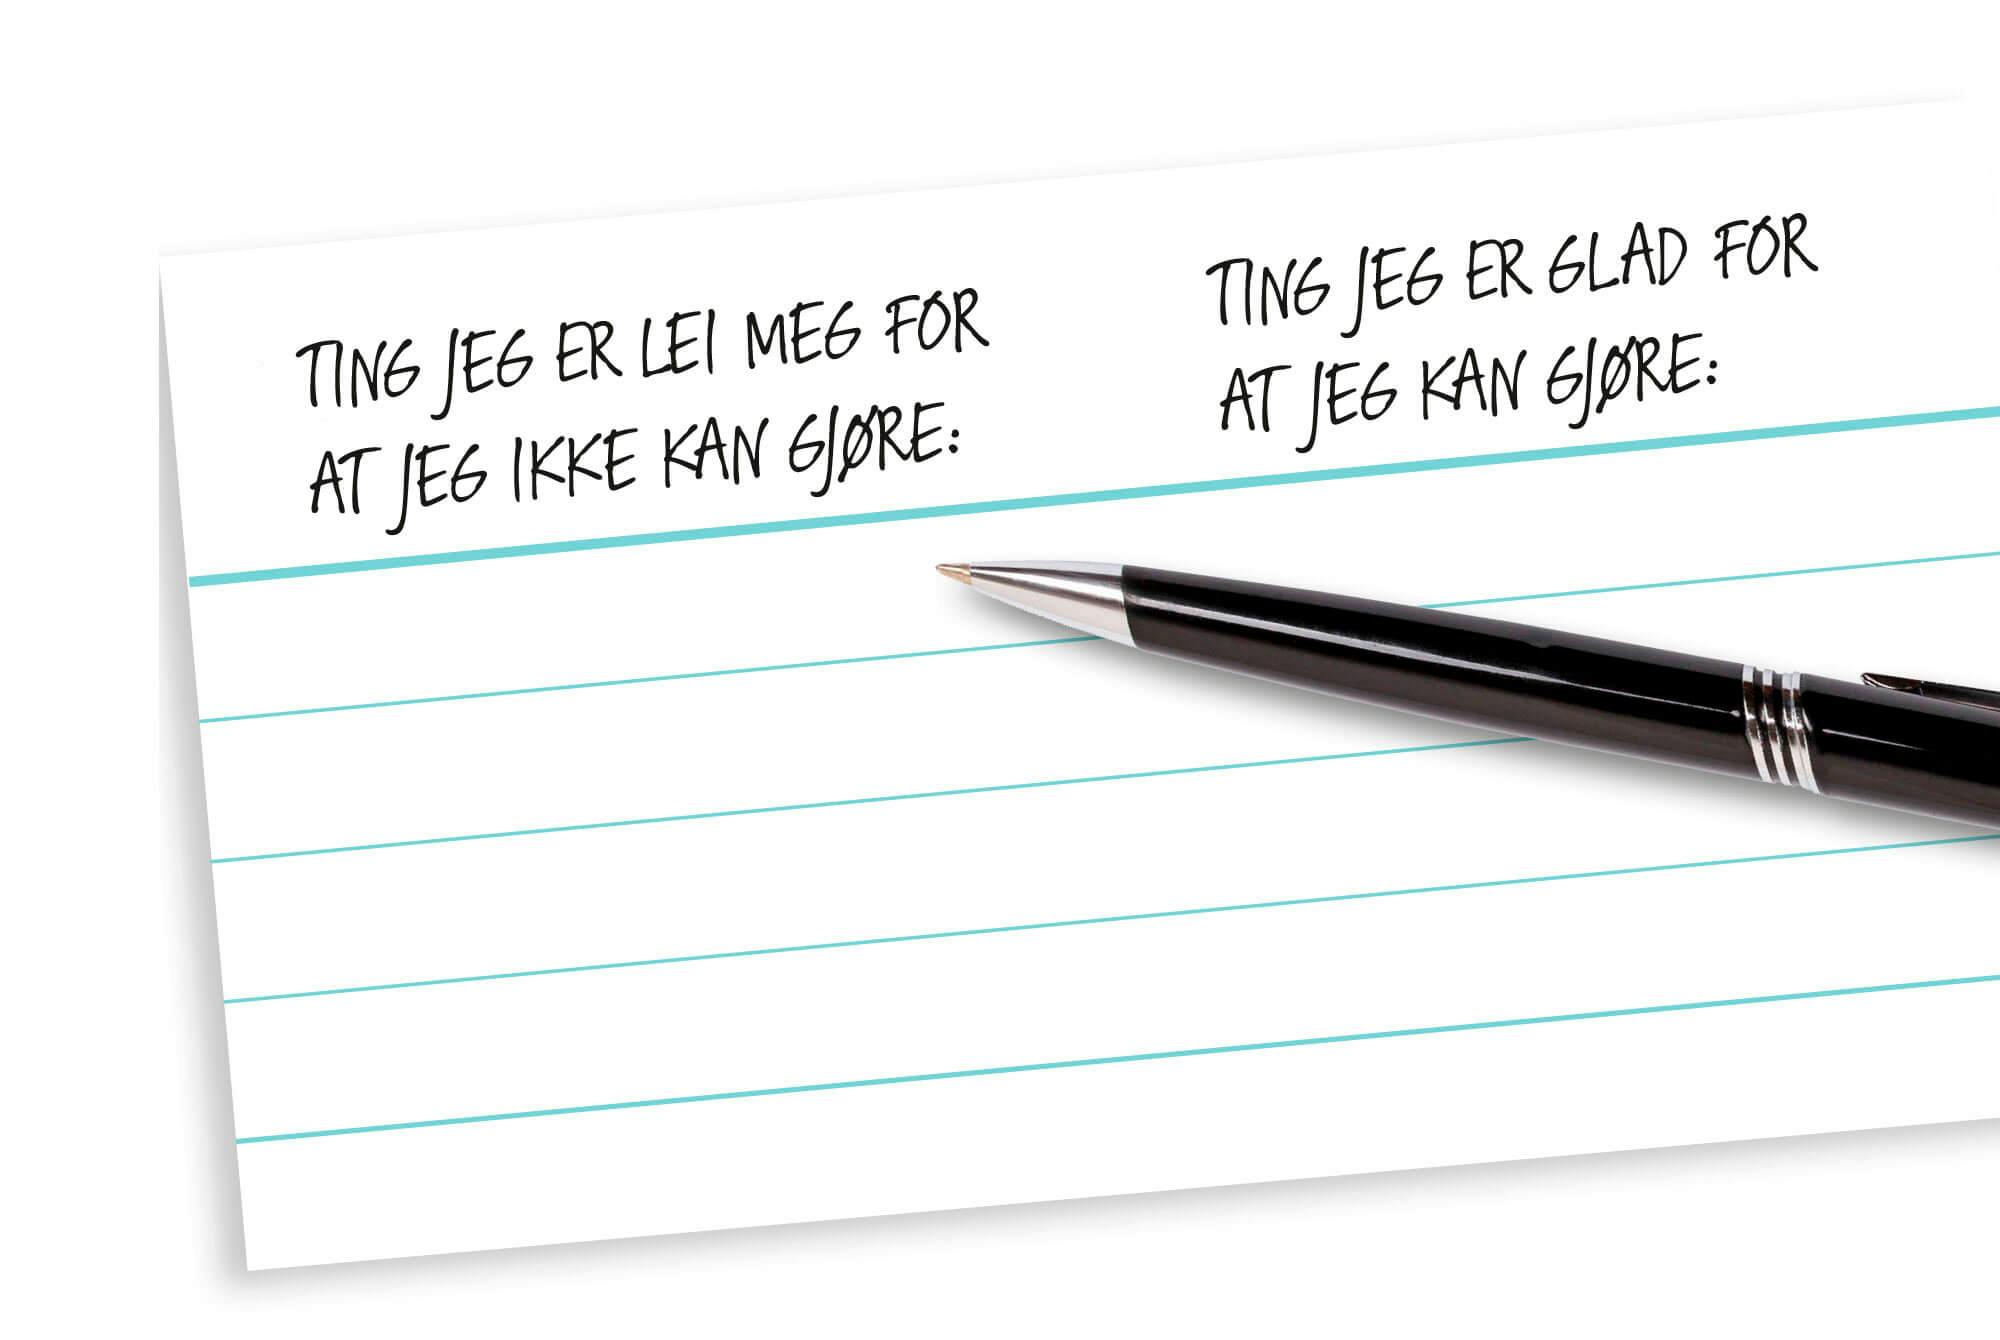 TING JEG ER LEI MEG FOR
AT JEG IKKE KAN GJØRE:
TING JEG ER GLAD FOR
AT JEG KAN GJØRE: